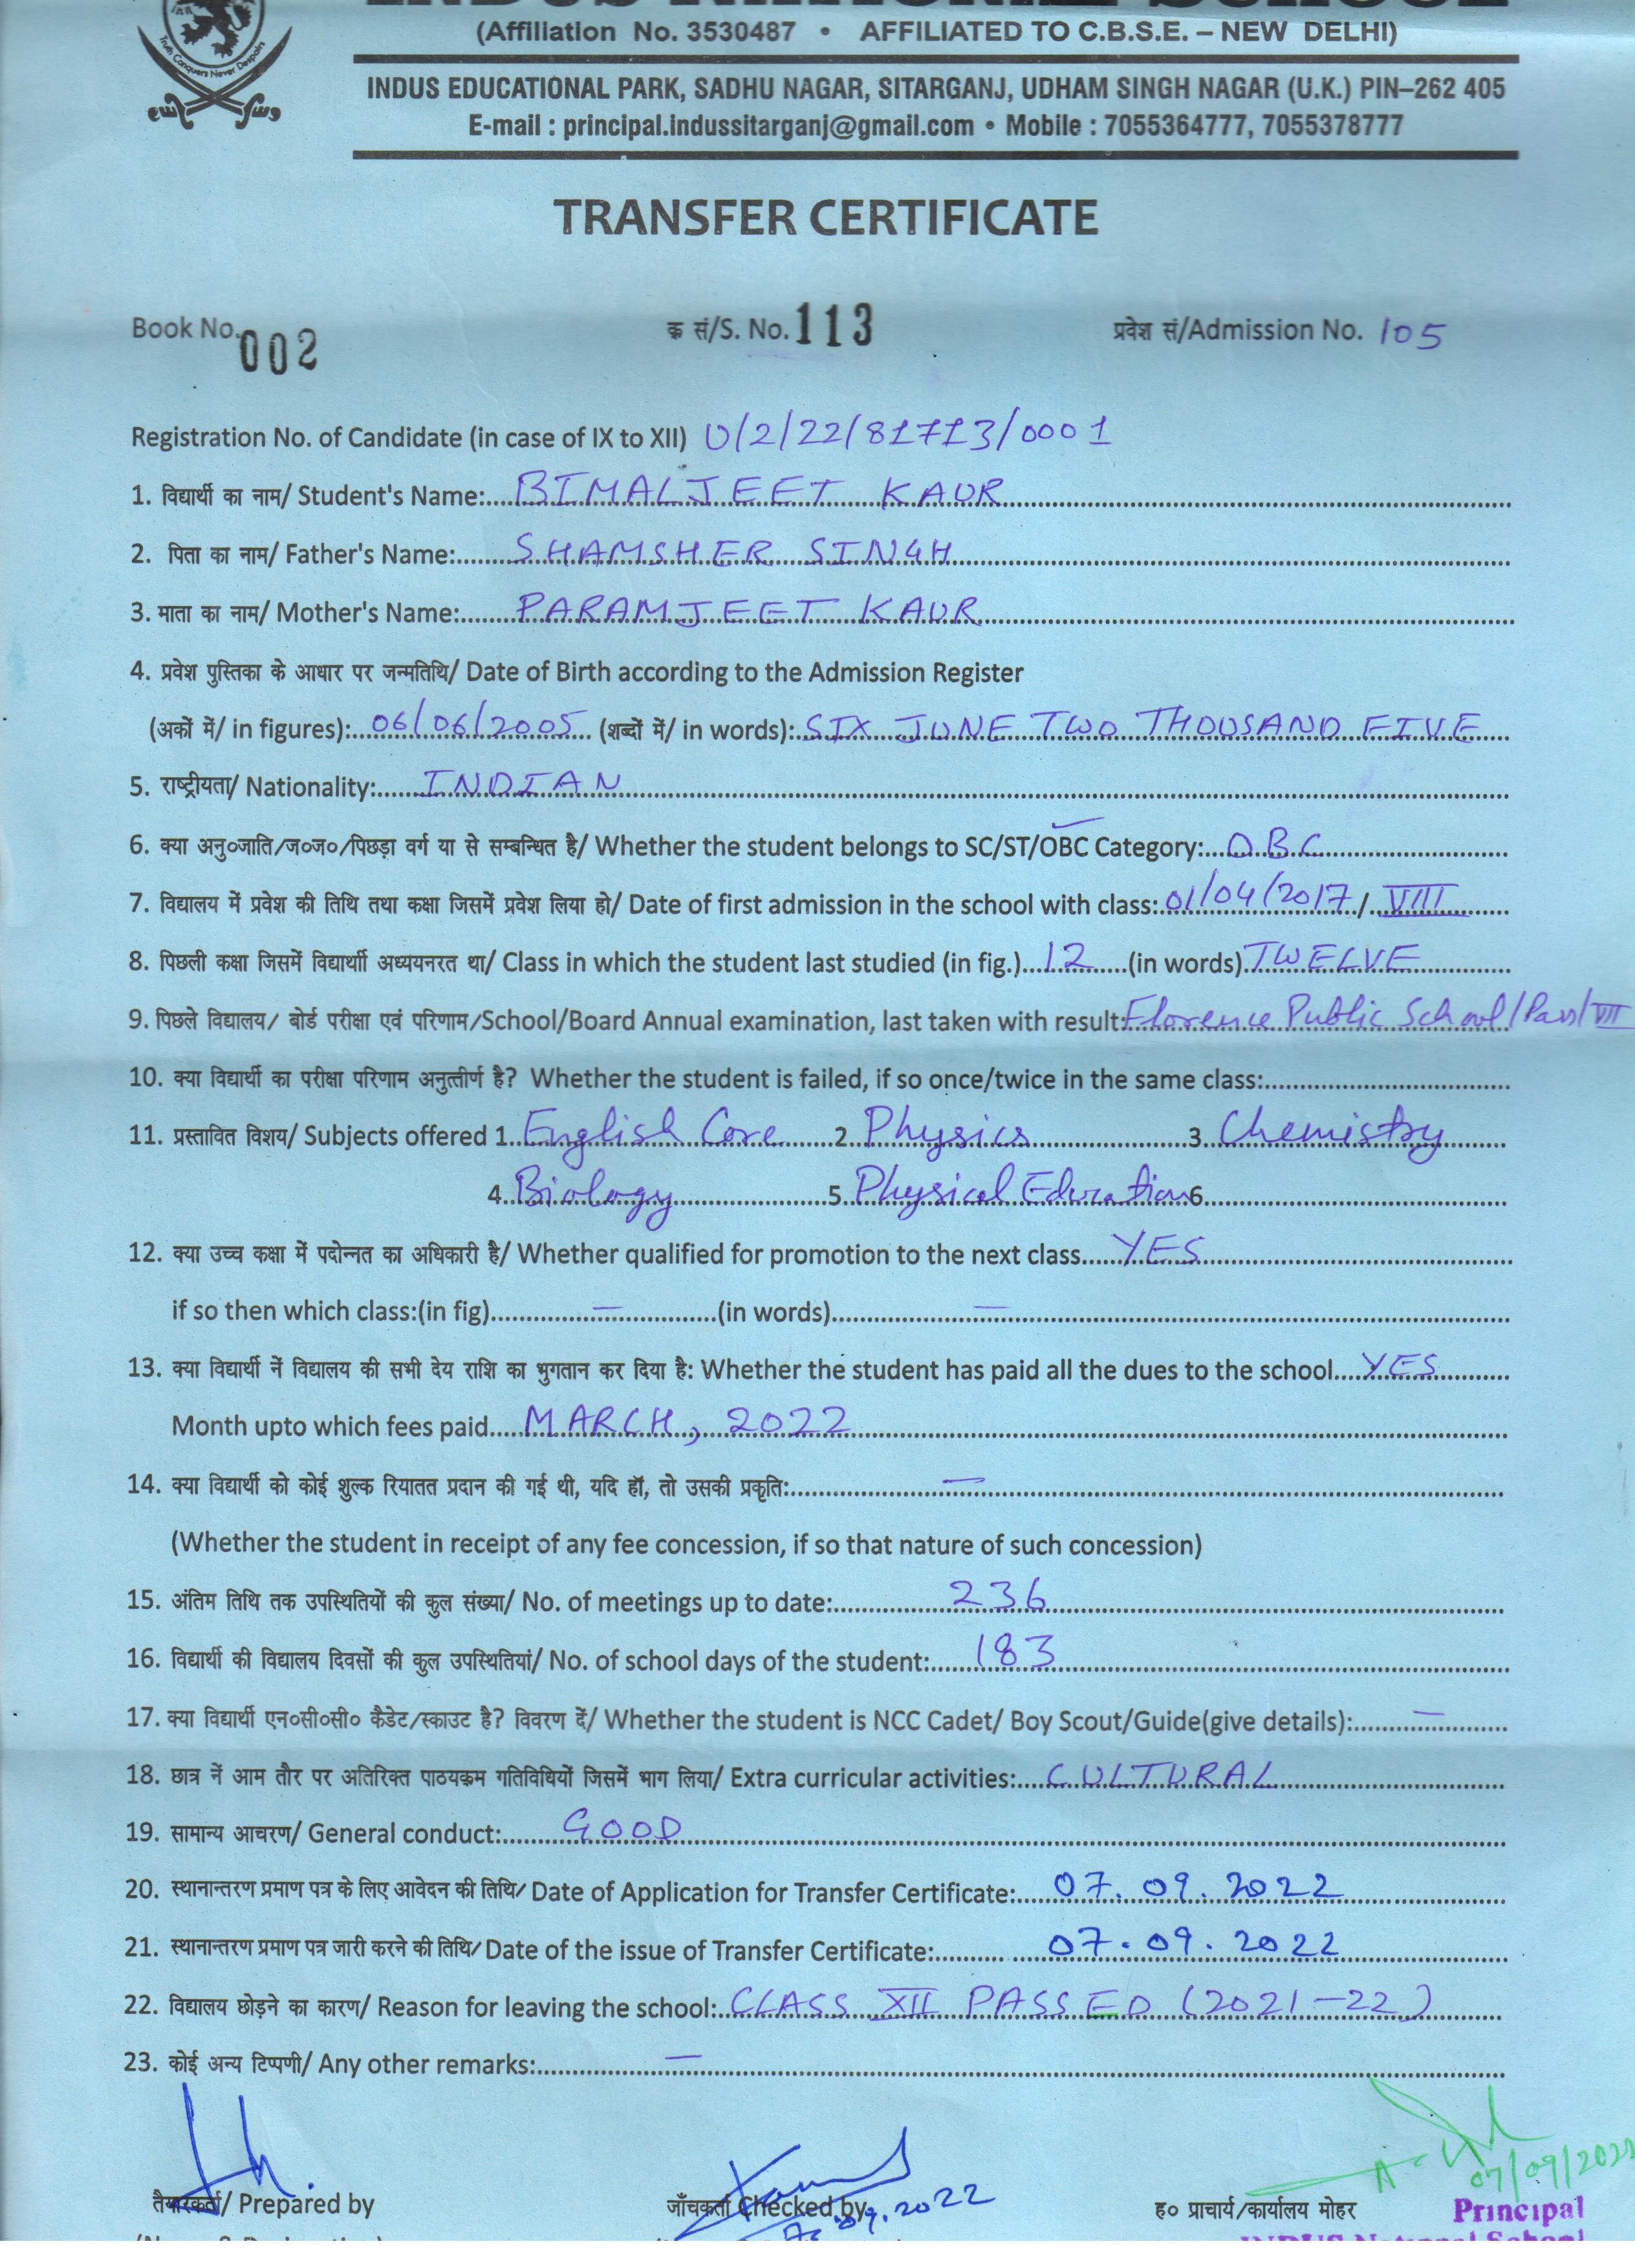 INDUS NATIONAL SCHOOL
(Affiliation No. 3530487 • AFFILIATED TO C.B.S.E. – NEW DELHI)
Truth Conquers Never Despairs
INDUS EDUCATIONAL PARK, SADHU NAGAR, SITARGANJ, UDHAM SINGH NAGAR (U.K.) PIN–262 405
E-mail : principal.indussitarganj@gmail.com • Mobile : 7055364777, 7055378777
TRANSFER CERTIFICATE
Book No. 002 क्र सं/S. No. 113 प्रवेश सं/Admission No. 105
Registration No. of Candidate (in case of IX to XII) U/2/22/81713/0001
1. विद्यार्थी का नाम/ Student's Name: BIMALJEET KAUR
2. पिता का नाम/ Father's Name: SHAMSHER SINGH
3. माता का नाम/ Mother's Name: PARAMJEET KAUR
4. प्रवेश पुस्तिका के आधार पर जन्मतिथि/ Date of Birth according to the Admission Register
(अकों में/ in figures): 06/06/2005 (शब्दों में/ in words): SIX JUNE TWO THOUSAND FIVE
5. राष्ट्रीयता/ Nationality: INDIAN
6. क्या अनु०जाति/ज०ज०/पिछड़ा वर्ग या से सम्बन्धित है/ Whether the student belongs to SC/ST/OBC Category: OBC
7. विद्यालय में प्रवेश की तिथि तथा कक्षा जिसमें प्रवेश लिया हो/ Date of first admission in the school with class: 01/04/2017 / VIII
8. पिछली कक्षा जिसमें विद्यार्थी अध्ययनरत था/ Class in which the student last studied (in fig.) 12 (in words) TWELVE
9. पिछले विद्यालय/ बोर्ड परीक्षा एवं परिणाम/School/Board Annual examination, last taken with result: Florence Public School/Pass/VII
10. क्या विद्यार्थी का परीक्षा परिणाम अनुत्तीर्ण है? Whether the student is failed, if so once/twice in the same class:
11. प्रस्तावित विशय/ Subjects offered 1. English Core 2. Physics 3. Chemistry
4. Biology 5. Physical Education 6.
12. क्या उच्च कक्षा में पदोन्नत का अधिकारी है/ Whether qualified for promotion to the next class YES
if so then which class:(in fig) — (in words) —
13. क्या विद्यार्थी नें विद्यालय की सभी देय राशि का भुगतान कर दिया है: Whether the student has paid all the dues to the school YES
Month upto which fees paid MARCH, 2022
14. क्या विद्यार्थी को कोई शुल्क रियातत प्रदान की गई थी, यदि हॉ, तो उसकी प्रकृति: —
(Whether the student in receipt of any fee concession, if so that nature of such concession)
15. अंतिम तिथि तक उपस्थितियों की कुल संख्या/ No. of meetings up to date: 236
16. विद्यार्थी की विद्यालय दिवसों की कुल उपस्थितियां/ No. of school days of the student: 183
17. क्या विद्यार्थी एन०सी०सी० कैडेट/स्काउट है? विवरण दें/ Whether the student is NCC Cadet/ Boy Scout/Guide(give details): —
18. छात्र नें आम तौर पर अतिरिक्त पाठयक्रम गतिविधियों जिसमें भाग लिया/ Extra curricular activities: CULTURAL
19. सामान्य आचरण/ General conduct: GOOD
20. स्थानान्तरण प्रमाण पत्र के लिए आवेदन की तिथि/ Date of Application for Transfer Certificate: 07.09.2022
21. स्थानान्तरण प्रमाण पत्र जारी करने की तिथि/ Date of the issue of Transfer Certificate: 07.09.2022
22. विद्यालय छोड़ने का कारण/ Reason for leaving the school: CLASS XII PASSED (2021-22)
23. कोई अन्य टिप्पणी/ Any other remarks: —
07/09/2022
तैयारकर्ता/ Prepared by जाँचकर्ता Checked by 07.09.2022 ह० प्राचार्य/कार्यालय मोहर Principal
INDUS National School